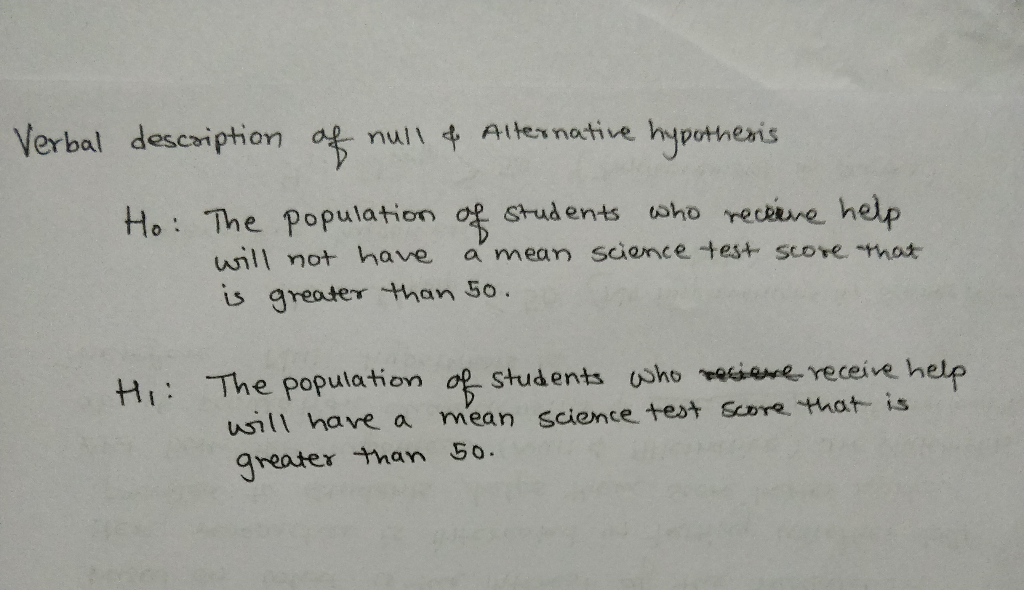 Verbal description of null & Alternative hypothesis
H0: The population of students who receive help
will not have a mean science test score that
is greater than 50.
H1: The population of students who recieve receive help
will have a mean science test score that is
greater than 50.